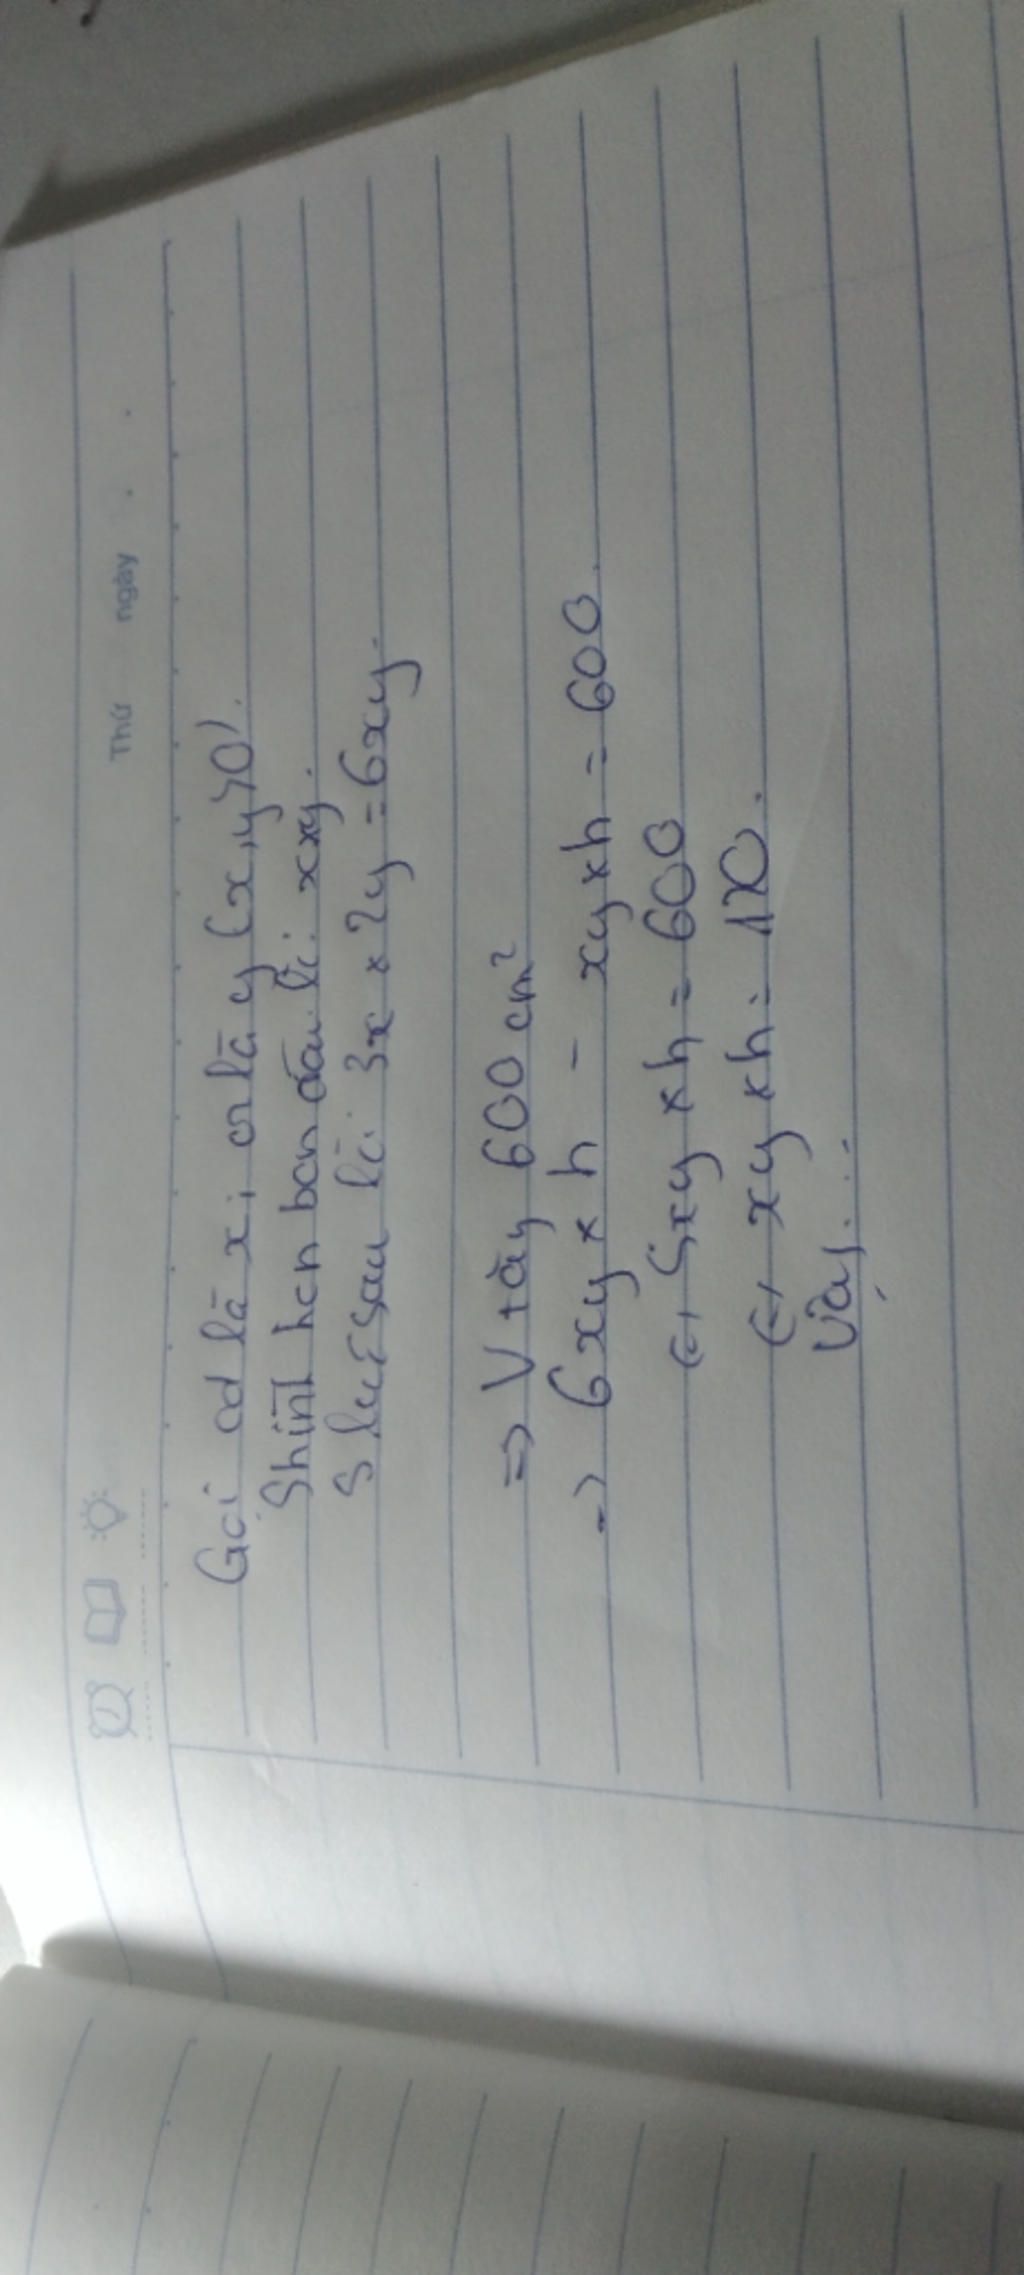 Thứ ngày
Gọi cd là x; cr là y (x,y>0).
Shình hcn ban đầu là: x×y.
S lúc sau là: 3x × 2y = 6xy.
=> V tăng 600 cm²
=> 6xy × h - xy × h = 600.
(=) 5xy × h = 600
(=) xy × h = 120.
Vậy...